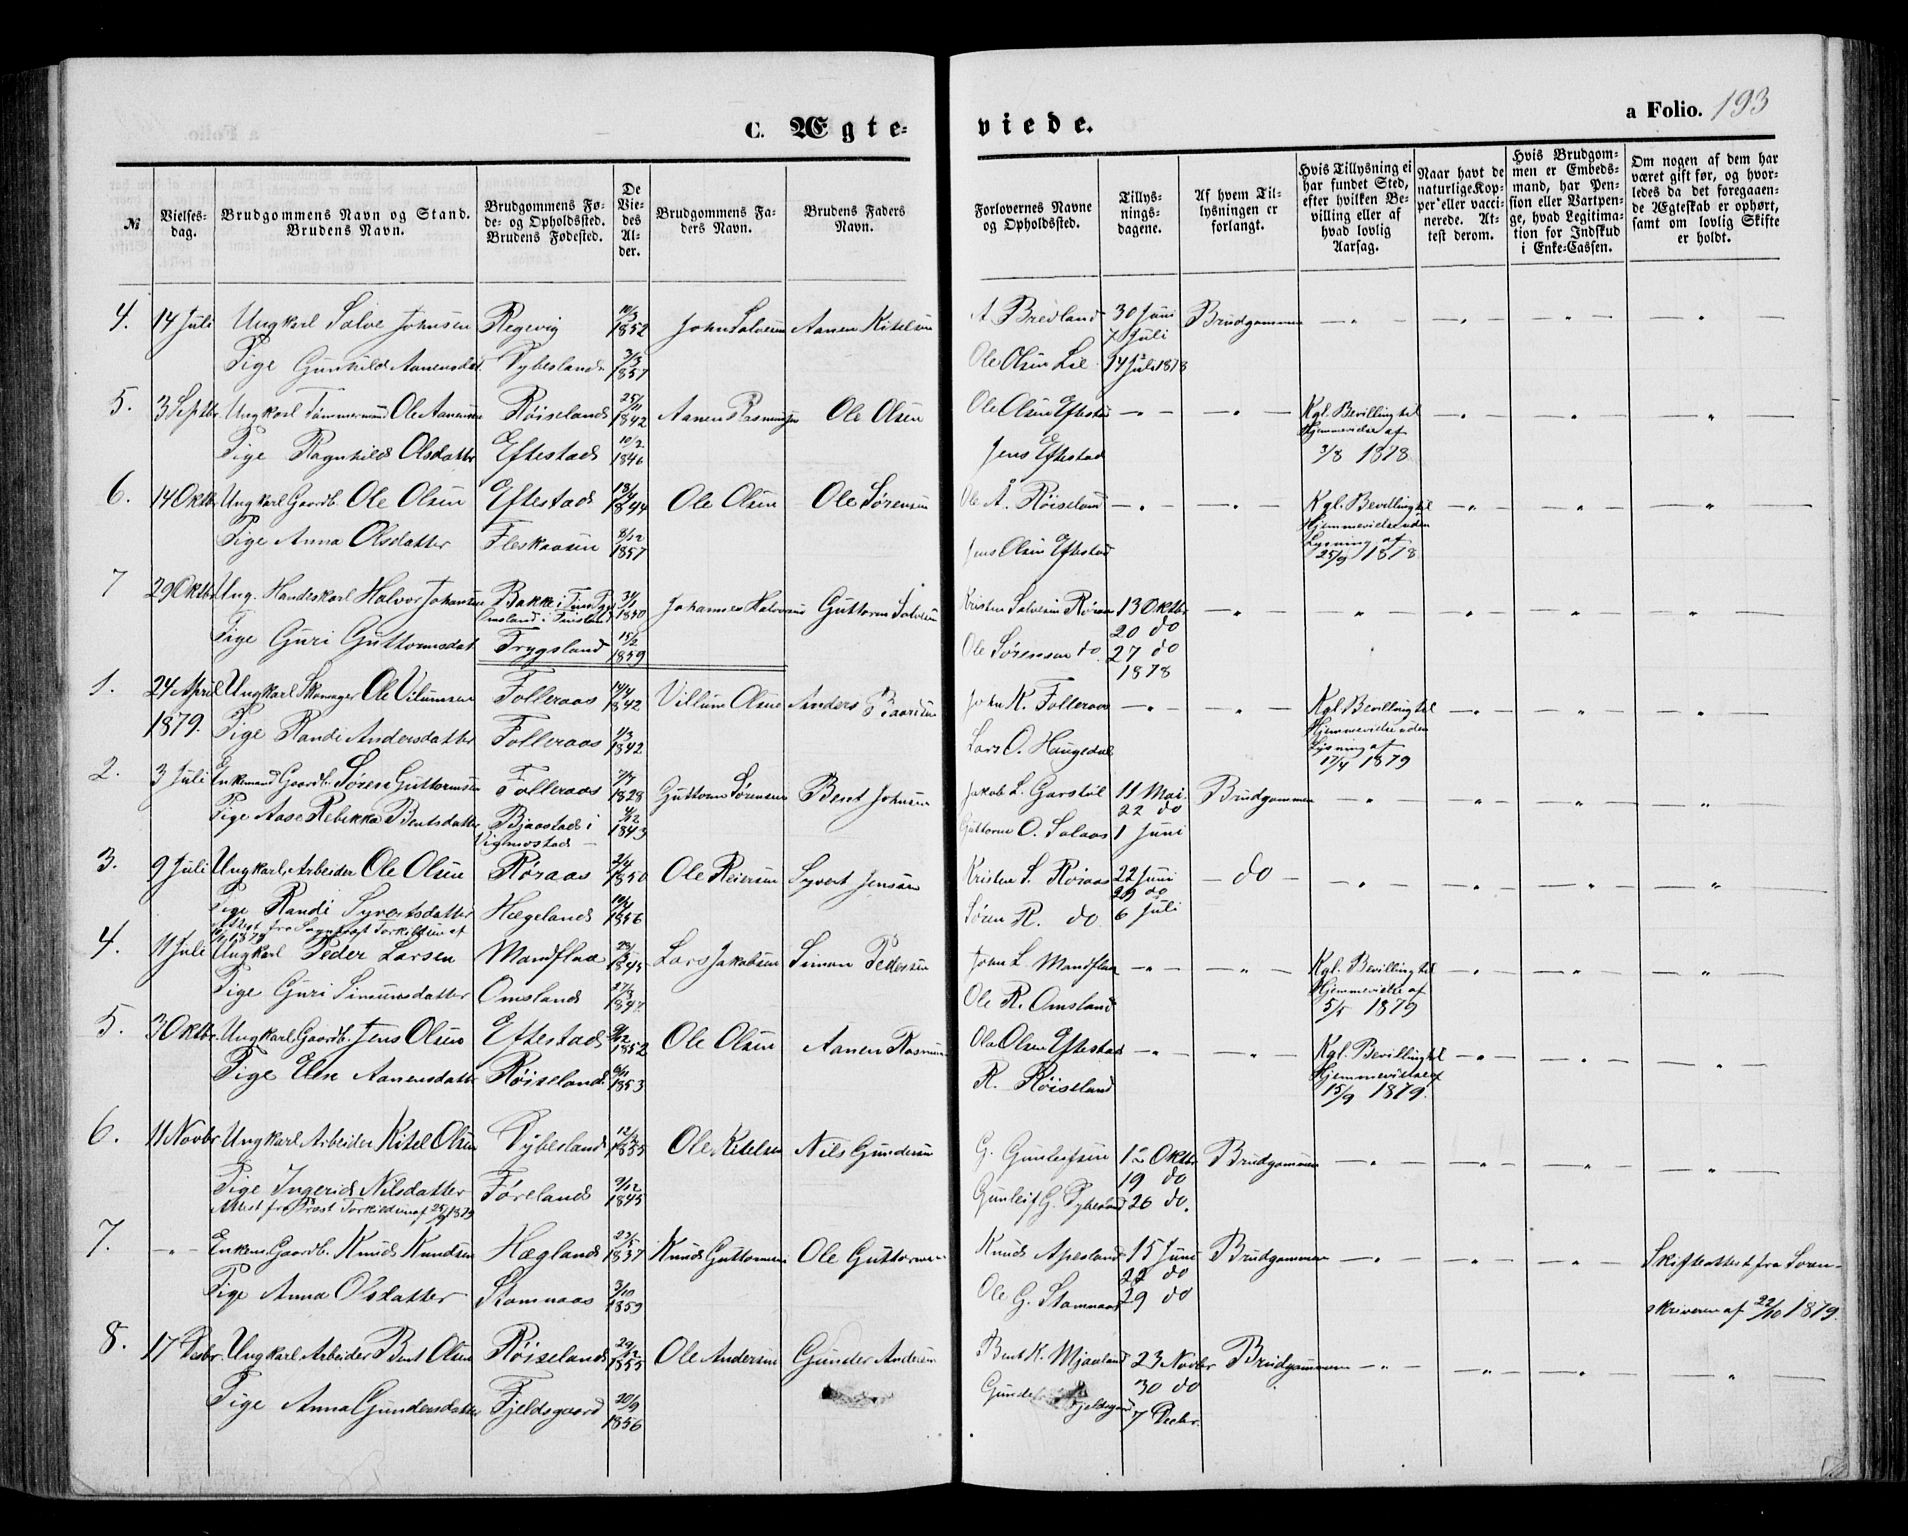 C. Ægte-
viede.
a Folio. 193
№
Vielses-
dag.
Brudgommens Navn og Stand.
Brudens Navn.
Brudgommens Fø-
de- og Opholdssted.
Brudens Fødested.
De
Vie-
des
Al-
der.
Brudgommens Fa-
ders Navn.
Brudens Faders
Navn.
Forlovernes Navne
og Opholdssted.
Tillys-
nings-
dagene.
Af hvem Til-
lysningen er
forlangt.
Hvis Tillysning ei
har fundet Sted,
efter hvilken Be-
villing eller af
hvad lovlig
Aarsag.
Naar havt de
naturlige Kop-
per eller vacci-
nerede. At-
test derom.
Hvis Brudgom-
men er Embeds-
mand, har Pen-
sion eller Vartpen-
ge, hvad Legitima-
tion for Indskud
i Enke-Cassen.
Om nogen af dem har
været gift før, og hvor-
ledes da det foregaaen-
de Ægteskab er ophørt,
samt om lovlig Skifte
er holdt.
4. 14 Juli Ungkarl Salve Johnsen Regevig 10/3 1852 John Salvesen Aanen Kitelsen A. Bredland 30 Juni Brudgommen
7 Juli
Pige Gunhild Aanensdat. Vybesland 3/3 1857 Ole Olsen Lie 14 Juli 1878
5. 3 Septbr. Ungkarl Tømmermand Ole Aanensen Røiseland 25/11 1842 Aanen Rasmussen Ole Olsen Ole Olsen Eftestad Kgl. Bevilling til
Hjemmevielse af
Pige Ragnhild Olsdatter Eftestad 10/2 1846 Jens Eftestad 3/8 1878
6. 14 Oktbr. Ungkarl Gaardb. Ole Olsen Eftestad 18/4 1844 Ole Olsen Ole Sørensen Ole A. Røiseland Kgl. Bevilling til
Hjemmevielse uden
Pige Anna Olsdatter Fleskaasen 8/12 1857 Jens Olsen Eftestad Lysning af
25/9 1878
7 29 Oktbr. Ung. Handelskarl Halvor Johansen Bakke i 1850 Johannes Halvorsen Guttorm Salvesen Kristen Salvesen Røraas 13 Oktbr
20 do
Pige Guri Guttormsdat Trygsland 15/2 1859 Ole Sørensen do. 27 do
1878
1. 24 April Ungkarl Skomager Ole Vilumsen Folleraas 14/4 1842 Villum Olsen Anders Baardsen John K. Folleraas Kgl. Bevilling til
Hjemmevielse uden
1879. Pige Randi Andersdatter Folleraas 4/3 1842 Lars O. Haugedal Lysning af
17/4 1879
2. 3 Juli Enkemand Gaardb. Søren Guttormsen Folleraas 1828 Guttorm Sørensen Bent Johnsen Jakob L. Garstøl 11 Mai. Brudgommen
22 do
Pige Aase Rebekka Bentsdatter Bjaastad i 4/12 1843 Guttorm O. Solaas 1 Juni
Vigmostad
3. 9 Juli Ungkarl Arbeider Ole Olsen Røraas 2/4 1850 Ole Reiersen Syvert Jensen Kristen S. Røraas 22 Juni do
29 do
Pige Randi Syvertsdatter Hægeland 1856 Søren R. do 6 Juli
Attest fra Sognepræst Torkildsen af
1879
4. 11 Juli Ungkarl Peder Larsen Mandflaa 1845 Lars Jakobsen Simon Pedersen John L. Mandflaa Kgl. Bevilling til
Hjemmevielse af
Pige Guri Simonsdatter Omsland 27/8 1847 Ole R. Omsland 5/5 1879
5. 3 Oktbr. Ungkarl Gaardb. Jens Olsen Eftestad 1852 Ole Olsen Aanen Rasmussen Ole Olsen Eftestad Kgl. Bevilling til
Hjemmevielse af
Pige Else Aanensdatter Røiseland 1853 R. Røiseland 15/9 1879.
6. 11 Novbr Ungkarl Arbeider Kitel Olsen Vybesland 12/3 1855 Ole Kitelsen Nils Gundersen G. Gunleifsen 12 Oktbr Brudgommen
19 do
Pige Ingerid Nilsdatter Føreland 9/12 1845 Gunleif G. Vybesland 26 do.
Attest fra Præst Torkildsen af 25/9 1879
7. Enkem. Gaardb. Knud Knudsen Hægland 23/5 1837 Knud Guttormsen Ole Guttormsen Knud Apesland 15 Juni Brudgommen Skifteattest fra Soren-
22 do
Pige Anna Olsdatter Stomnaas 3/10 1859 Ole G. Stomnaas 29 do skriveren af 22/10 1879.
8. 17 Decbr. Ungkarl Arbeider Bent Olsen Røiseland 29/12 1855 Ole Andersen Gunder Andersen Bent K. Mjaaland 23 Novbr Brudgommen
30 do
Pige Anna Gundersdatter Fjeldsgaard 20/9 1856 Gunder Fjeldsgaard 7 Decbr.